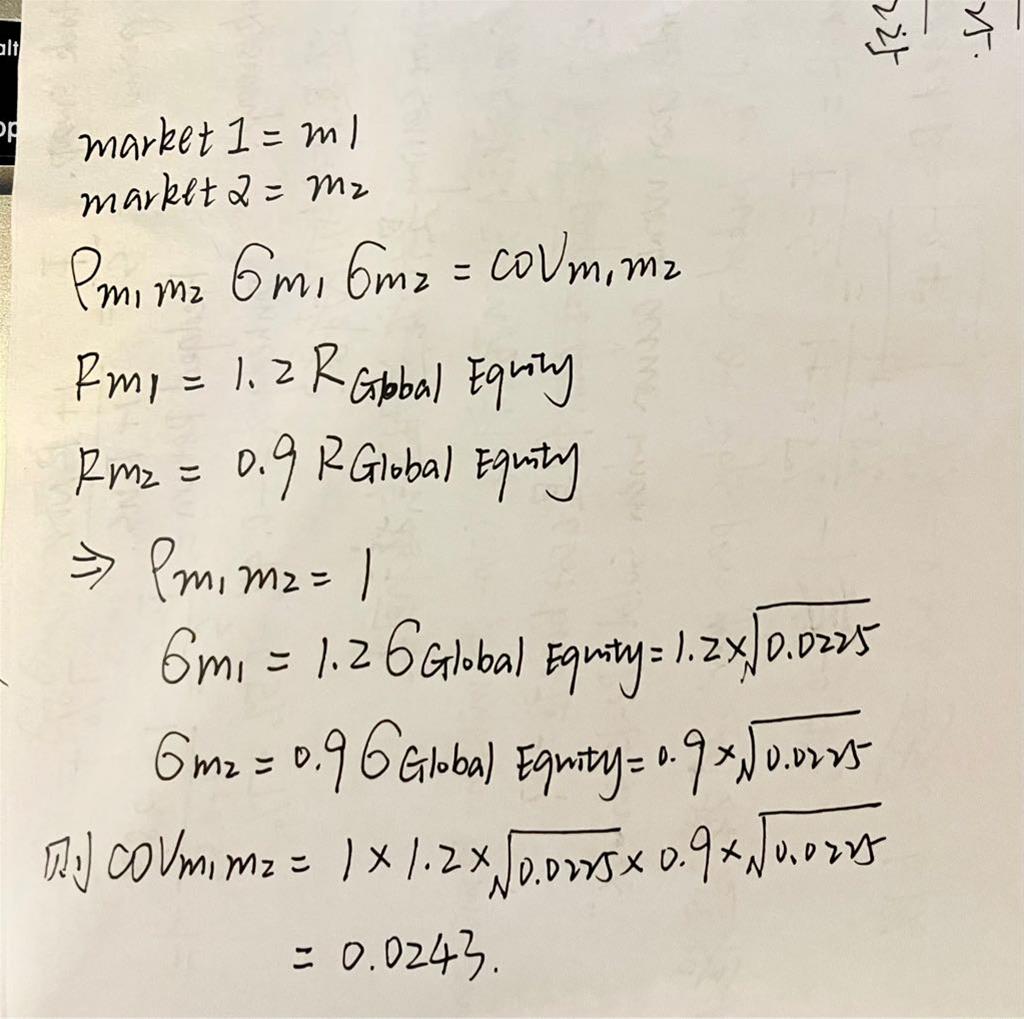 alt
op
market 1 = m1
market 2 = m2
ρm1 m2 σm1 σm2 = COVm1 m2
Rm1 = 1.2 R Global Equity
Rm2 = 0.9 R Global Equity
⇒ ρm1 m2 = 1
σm1 = 1.2 σ Global Equity = 1.2×√0.0225
σm2 = 0.9 σ Global Equity = 0.9×√0.0225
则 COVm1 m2 = 1 × 1.2 × √0.0225 × 0.9 × √0.0225
= 0.0243.